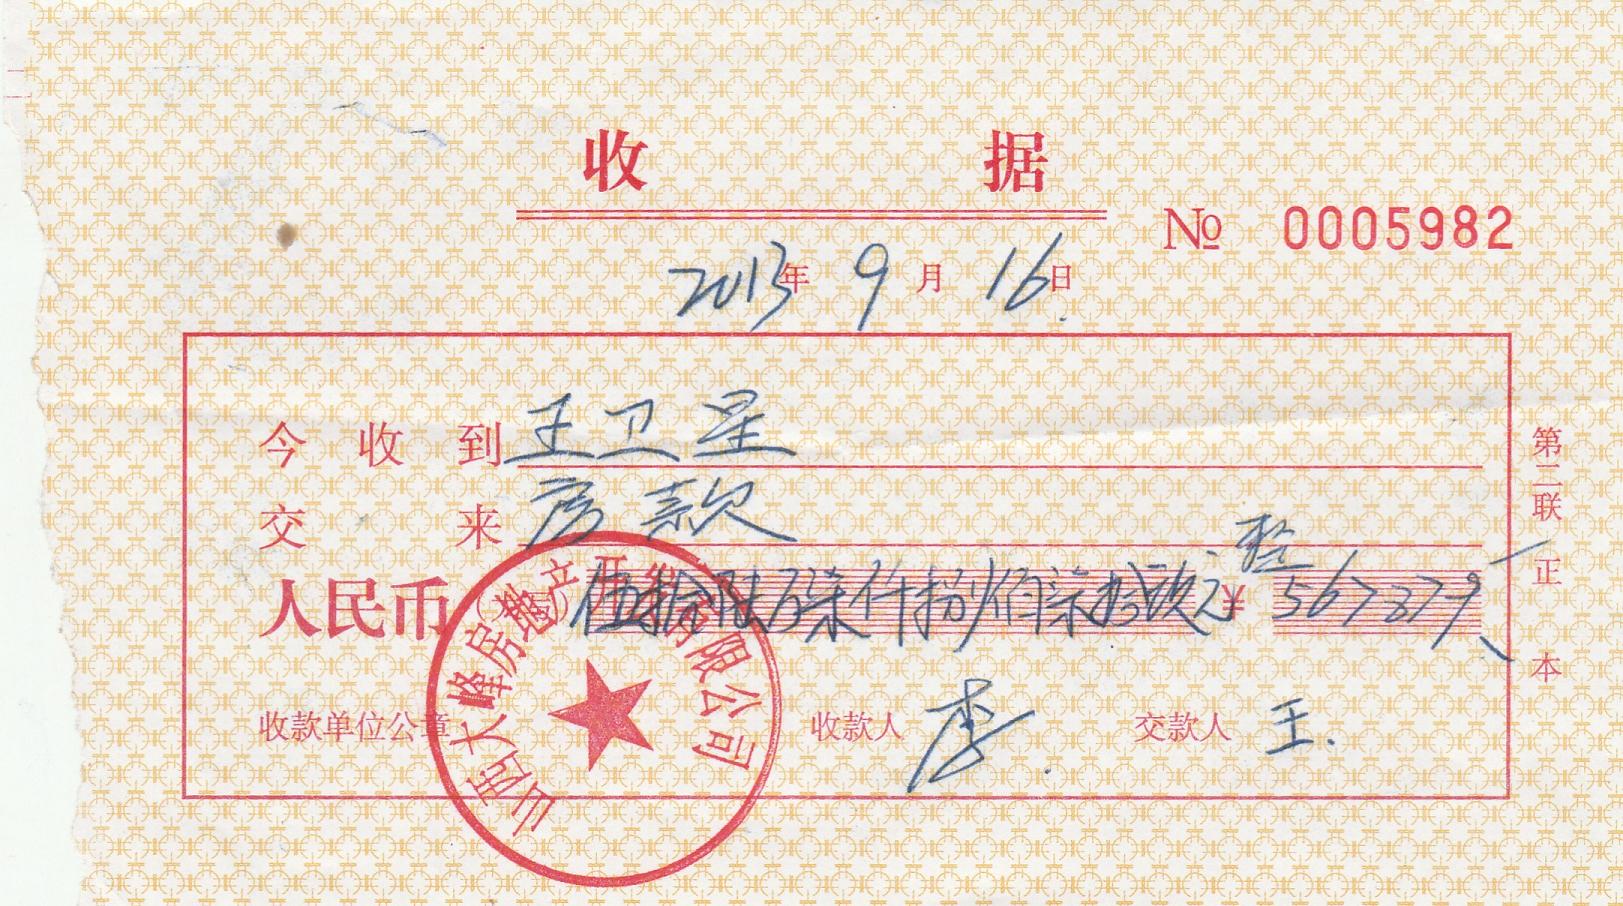 收 据
No 0005982
2013年 9月 16日
今收到 王卫星
交来 房款
人民币 伍拾陆万柒仟捌佰柒拾玖元整 ¥ 567879
收款单位公章 收款人 李 交款人 王.
山西大峰房地产开发有限公司
第二联 正本